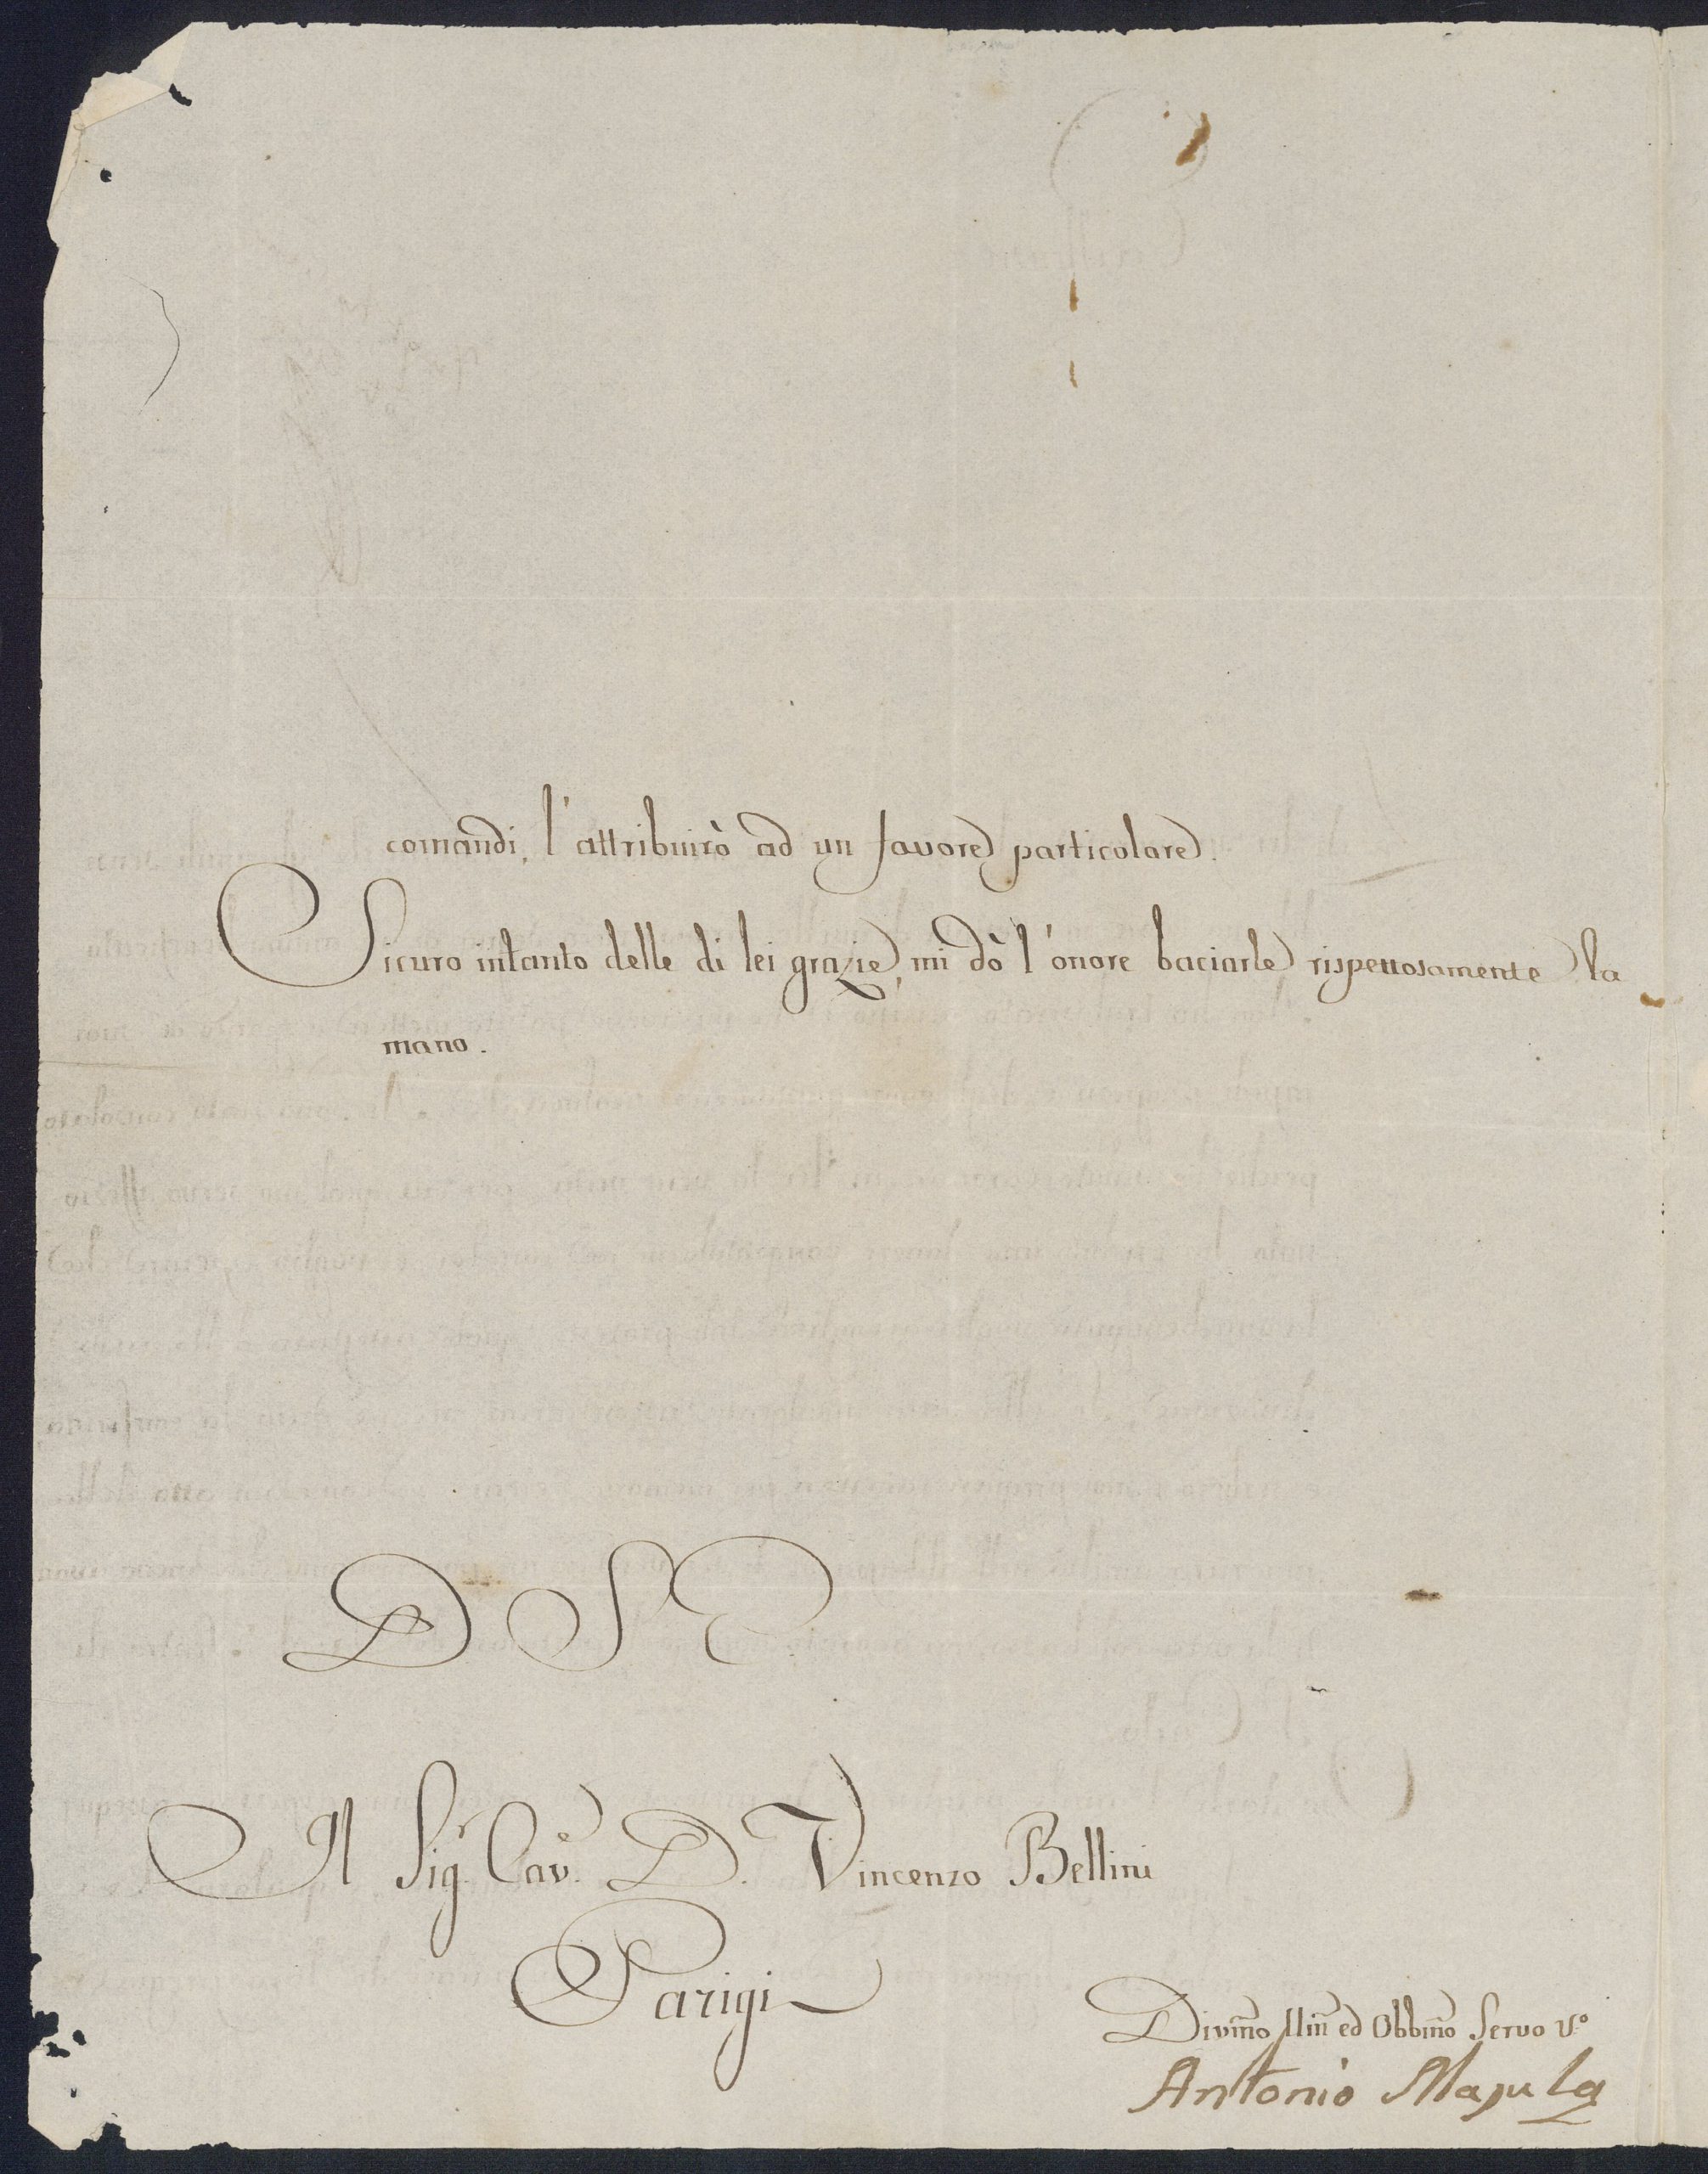 comandi, l'attribuirò ad un favore particolare.
Sicuro intanto delle di lei grazie, mi dò l'onore baciarle rispettosamente la
mano.
D S E
Al Sigr. Cave. D. Vincenzo Bellini
Parigi
ed Obbm̃o Servo Vo.
Antonio